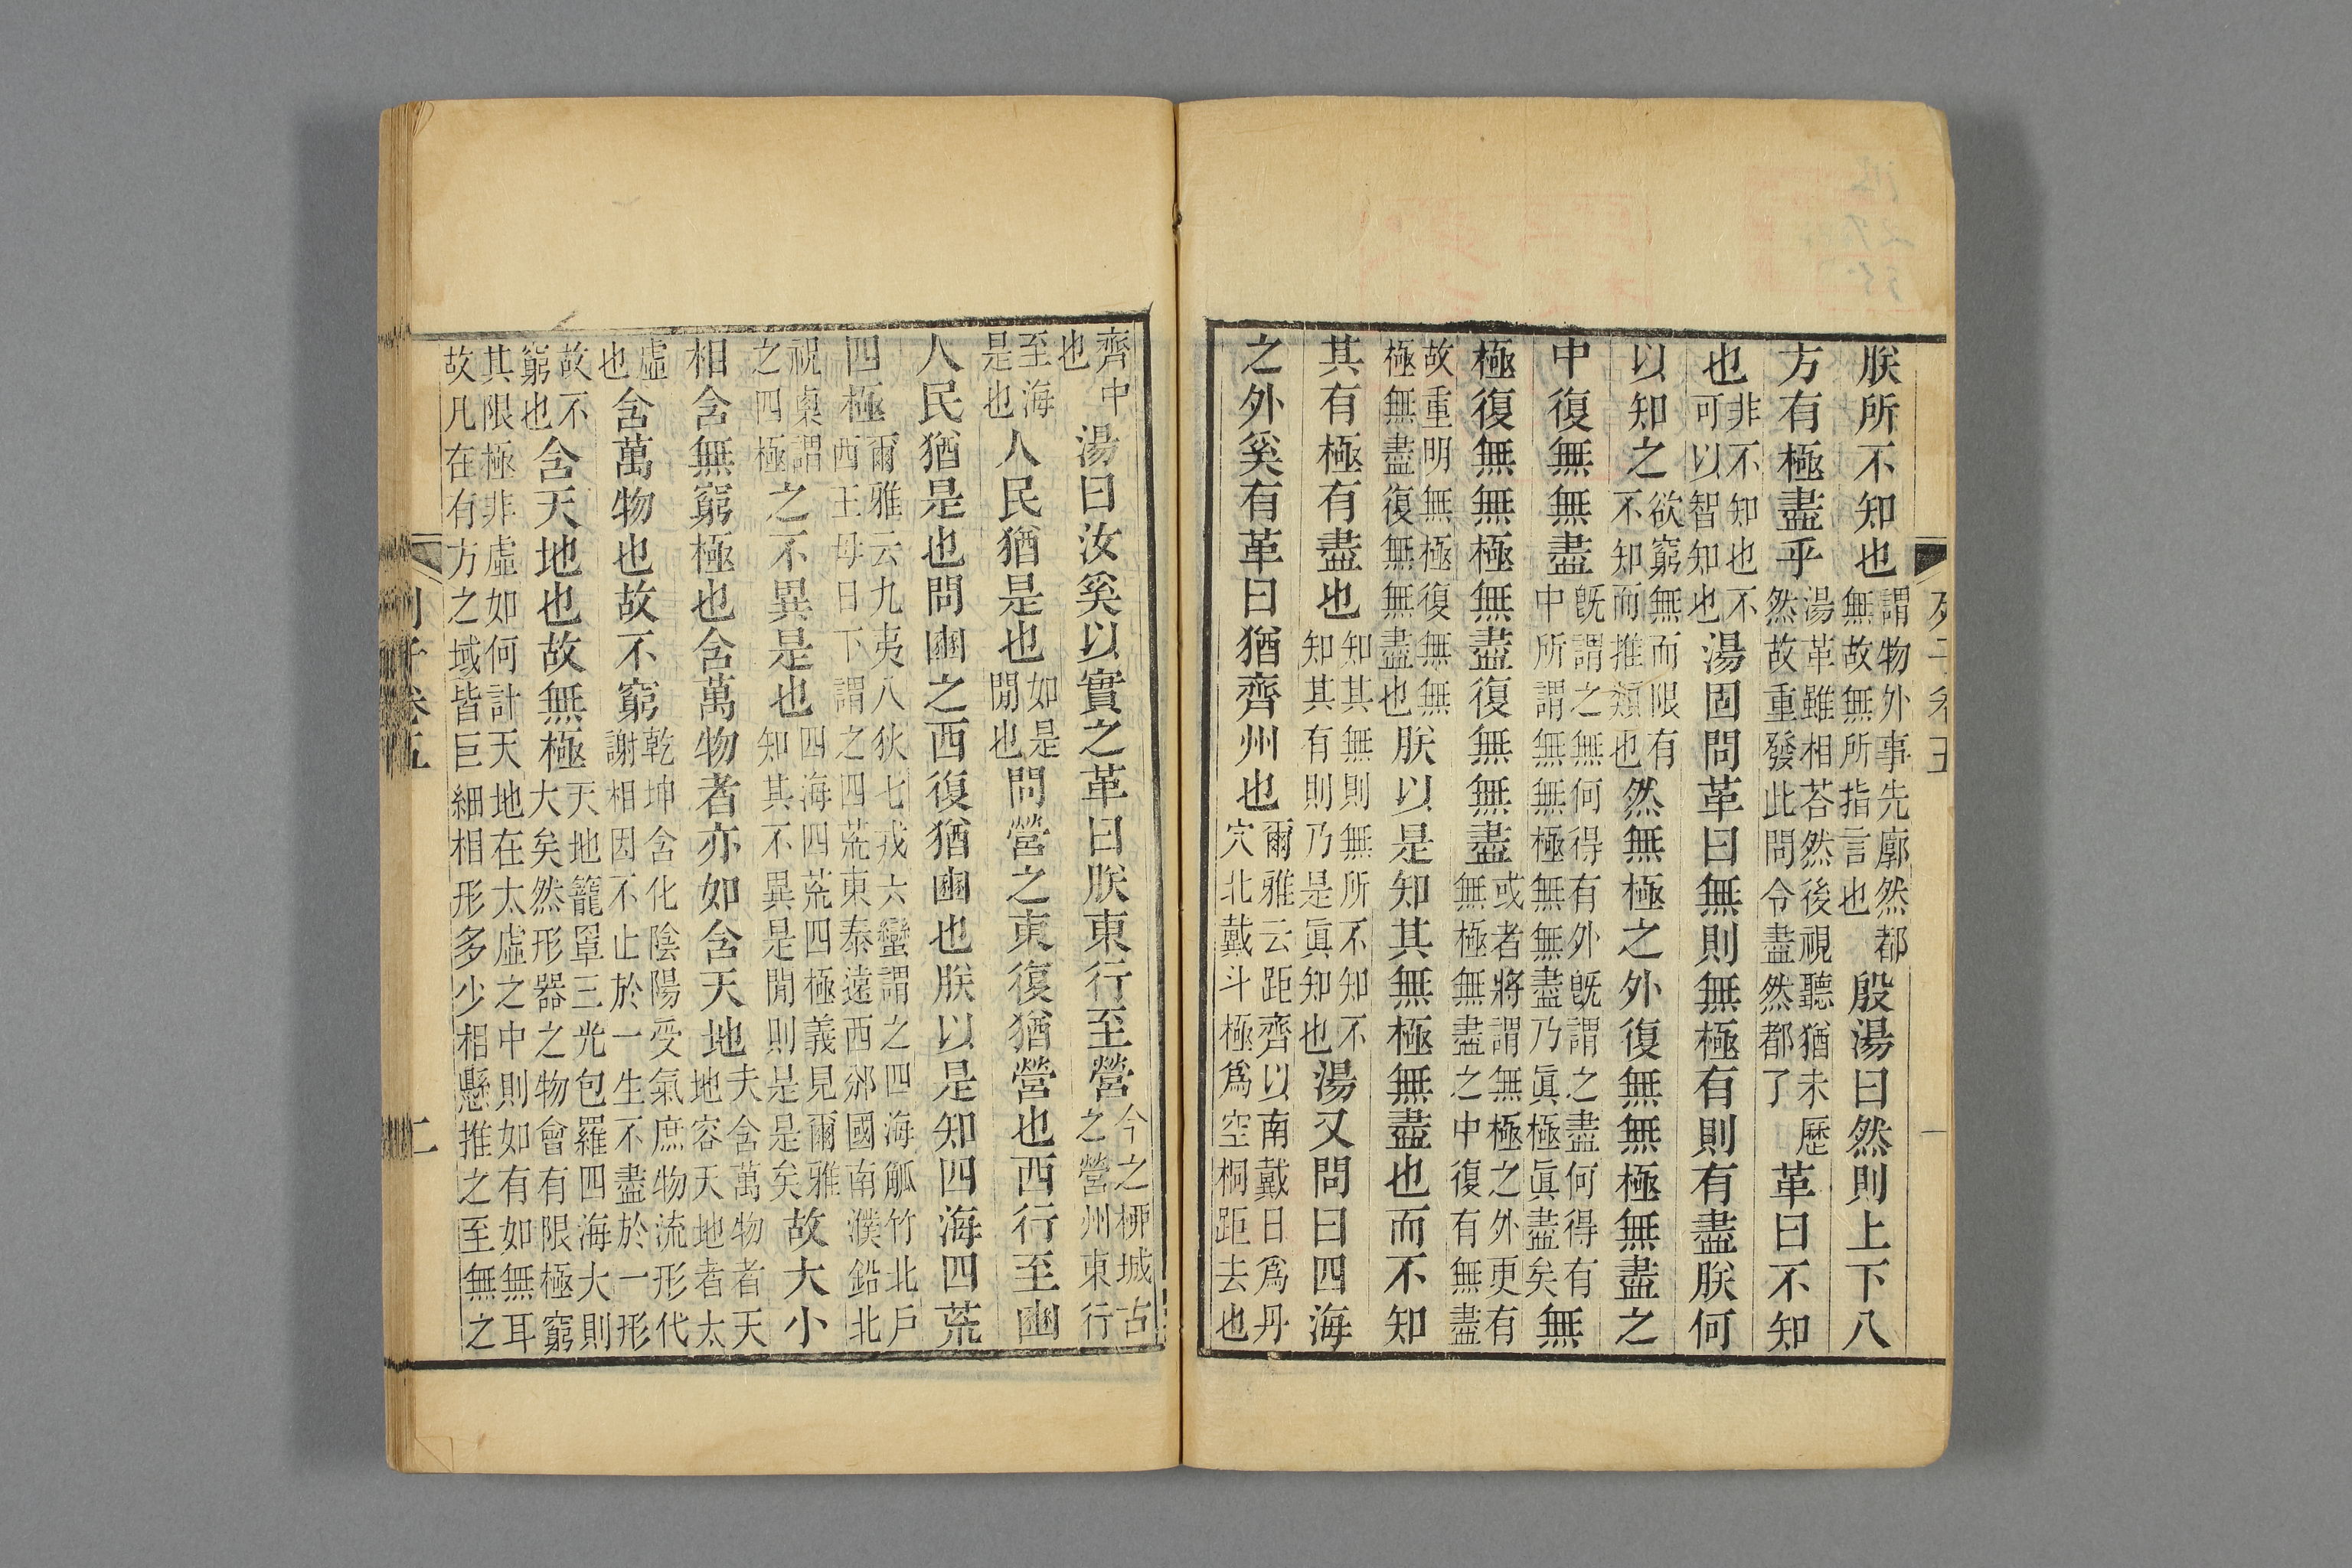 朕所不知也謂物外事先廓然都無故無所指言也殷湯曰然則上下八
方有極盡乎湯革雖相荅然後視聽猶未歷然故重發此問令盡然都了革曰不知
也非不知也不可以智知也湯固問革曰無則無極有則有盡朕何
以知之欲窮無而限有不知而推類也然無極之外復無無極無盡之
中復無無盡旣謂之無何得有外旣謂之盡何得有中所謂無無極無無盡乃眞極眞盡矣無
極復無無極無盡復無無盡或者將謂無極之外更有無極無盡之中復有無盡
故重明無極復無無極無盡復無無盡也朕以是知其無極無盡也而不知
其有極有盡也知其無則無所不知不知其有則乃是眞知也湯又問曰四海
之外奚有革曰猶齊州也爾雅云距齊以南戴日爲丹穴北戴斗極爲空桐距去也
齊中也湯曰汝奚以實之革曰朕東行至營今之柳城古之營州東行
至海是也人民猶是也如是閒也問營之東復猶營也西行至豳
人民猶是也問豳之西復猶豳也朕以是知四海四荒
四極爾雅云九夷八狄七戎六蠻謂之四海觚竹北戶西王母日下謂之四荒東泰遠西邠國南濮鉛北
祝栗謂之四極之不異是也四海四荒四極義見爾雅知其不異是閒則是是矣故大小
相含無窮極也含萬物者亦如含天地夫含萬物者天地容天地者太
虛也含萬物也故不窮乾坤含化陰陽受氣庶物流形代謝相因不止於一生不盡於一形
故不窮也含天地也故無極天地籠罩三光包羅四海大則大矣然形器之物會有限極窮
其限極非虛如何計天地在太虛之中則如有如無耳故凡在有方之域皆巨細相形多少相懸推之至無之
列子卷五
二